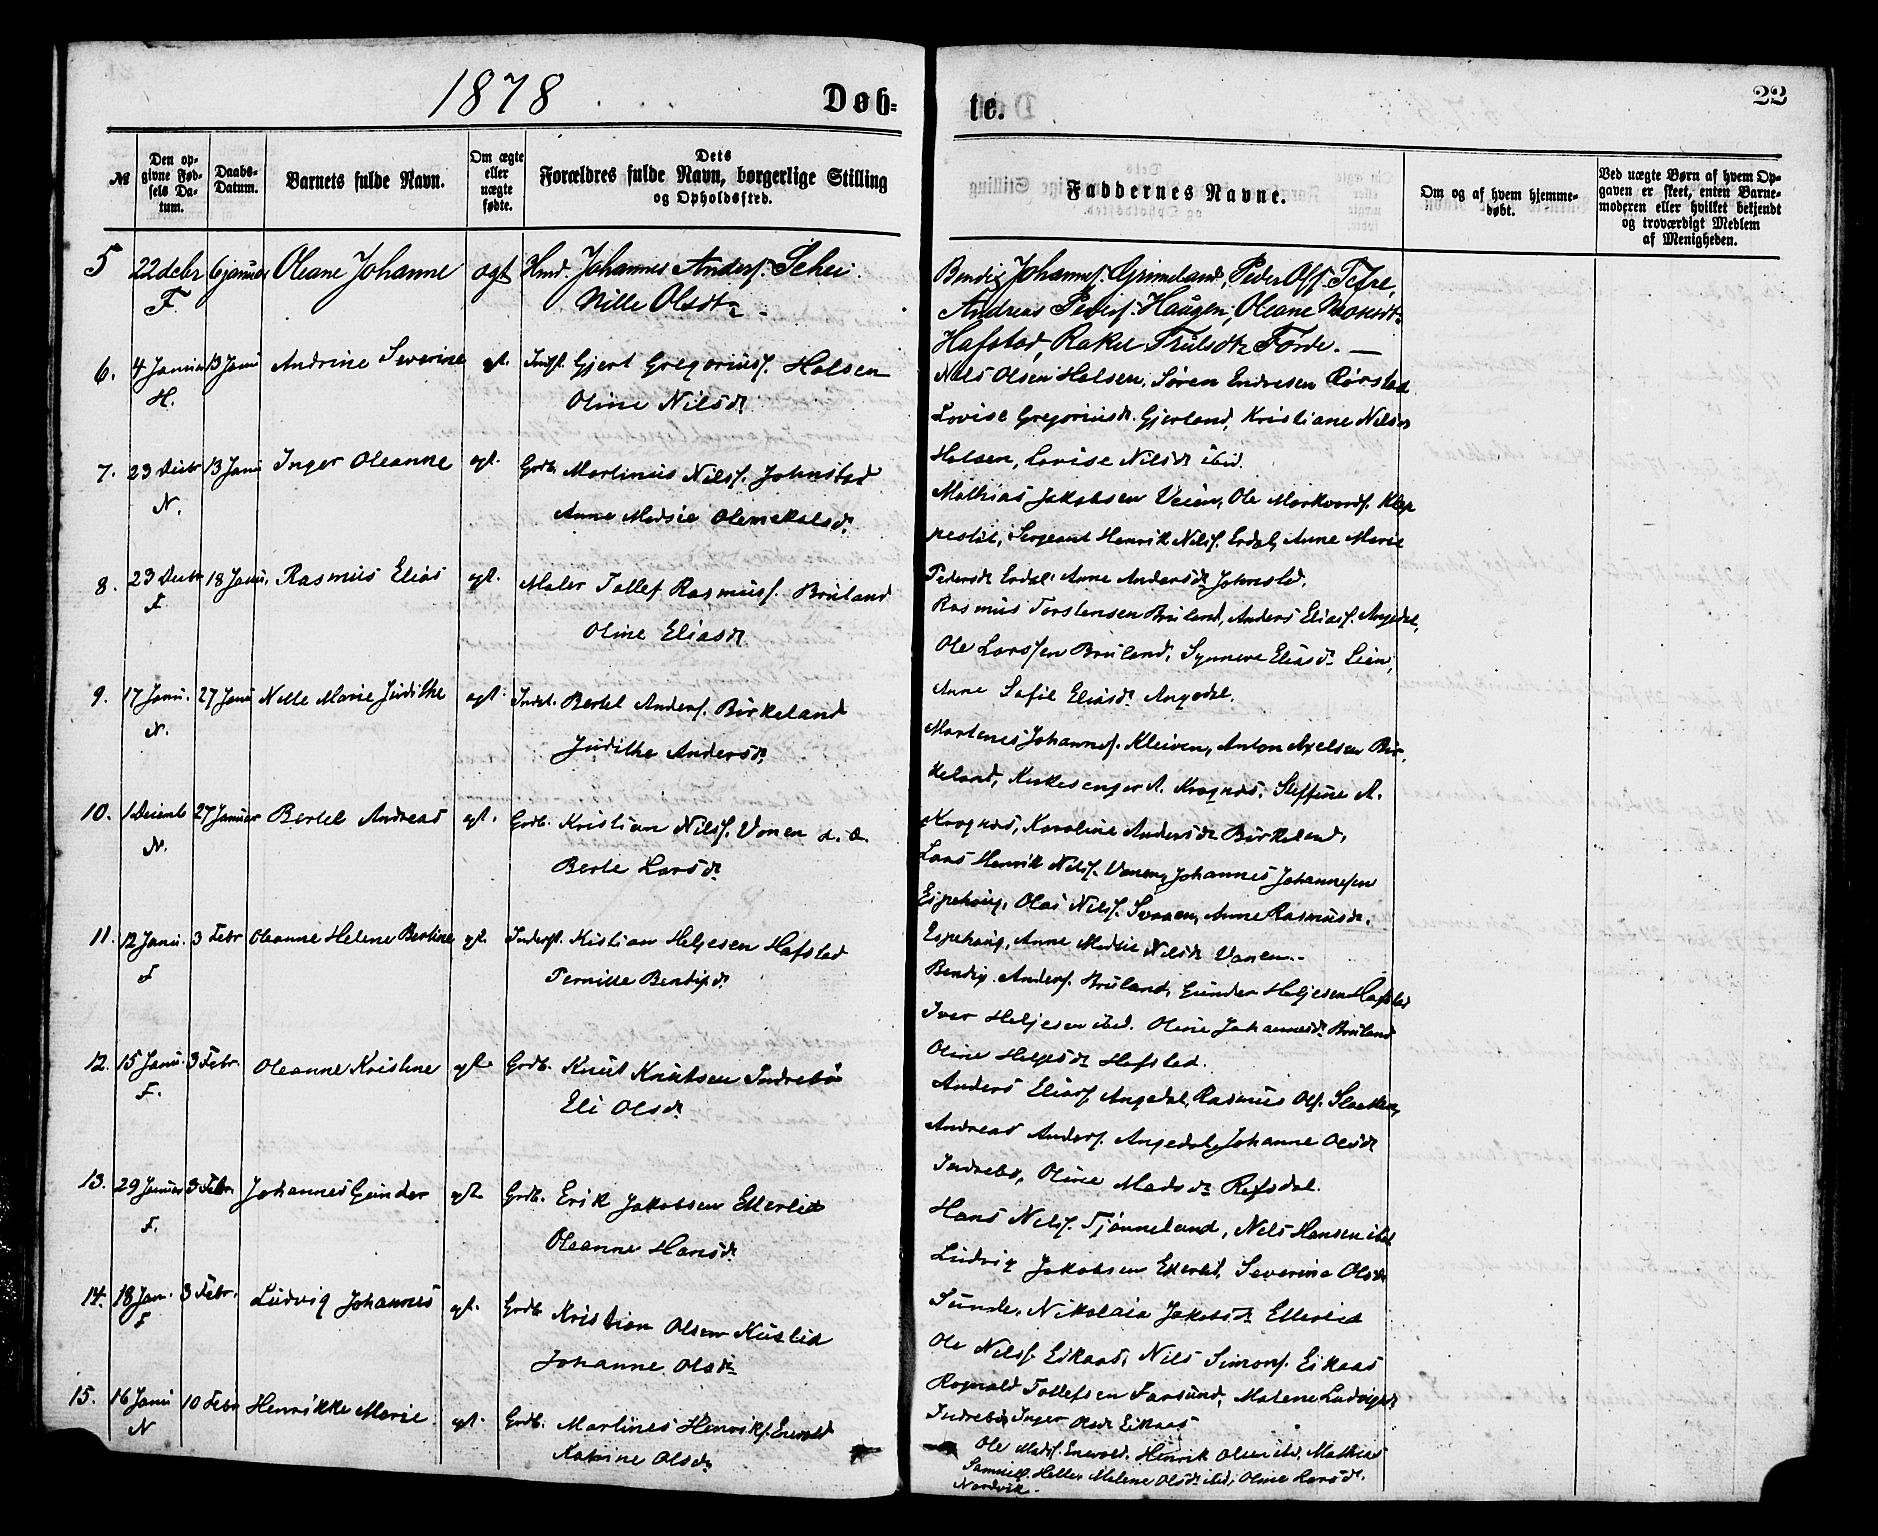 1878
Døb=
te.
22
№
Den op-
givne Fød-
sels Da-
tum.
Daabs-
Datum.
Barnets fulde Navn.
Om ægte
eller
uægte
fødte.
Dets
Forældres fulde Navn, borgerlige Stilling
og Opholdssted.
Faddernes Navne.
Om og af hvem hjemme-
døbt.
Ved uægte Børn af hvem Op-
gaven er skeet, enten Barne-
moderen eller hvilket bekjendt
og troværdigt Medlem
af Menigheden.
5 22 debr 6 januar Oleane Johanne ægt Hmd. Johannes Anders. Schei.
F. Nille Olsdtr
Bendix Johannes. Grimeland, Peder Ols. Tefre,
Andreas Peders. Haugen, Oleane
Hafstad, Rakel Trulsdtr Förde.
6. 4 Januar 13 Janu Andrine Severine ægt. Indst. Gjert Gregorius. Holsen
H. Oline Nilsdr
Nils Olsen Holsen, Søren Endresen Rørstad
Lovise Gregoriusdr. Gjerland, Kristiane Nilsdr
Holsen, Lovise Nilsdr ibid.
7. 23 Decbr 13 Janu Inger Oleanne ægt. Grdb. Martinus Nils. Johnstad
N. Anne Madsie
Mathias Jakobsen Veien, Ole Markvards. Klep
pestøl, Sergeant Henrik Nils. Erdal, Anne Marie
Pedersdr Erdal. Anne Andersdr Johnstad.
8. 23 Decbr 18 Janu. Rasmus Elias ægt. Maler Tollef Rasmus. Bruland
F Oline Eliasdr
Rasmus Torstensen Bruland, Anders Elias. Angedal,
Ole Larssen Bruland, Synneve Eliasdr Lien,
Anne Sofie Eliasdr Angedal.
9. 17 Janu. 27 Janu Nelle Marie Judithe ægt. Indst. Bertel Anders. Birkeland
N. Judithe Andersdr
Martenes Johannes. Kleiven, Anton Axelsen Bir-
keland, Kirkesenger A. Kragnæs, Steffine A.
Kragnæs, Karoline Andersdr Birkeland.
10. 1 Decemb 27 Januar Bertel Andreas ægt. Grdb. Kristian Nils. Vonen
N. Berte Larsdr
Lars Henrik Nils. Vonen, Johannes Johannesen
Espehaug, Olas Nils. Svaaen, Anne Rasmusdr.
Espehaug, Anne Madsie Nilsdr Vonen.
11. 12 Janu. 3 Febr Oleanne Helene Bertine ægt. Inderst. Kistian Heljesen Hafstad
F Pernille Bendixdr
Bendix Anders. Bruland, Gunder Heljesen Hafstad
Iver Heljesen ibid. Oline Johannesdr. Bruland
Oline Heljesdr Hafstad.
12. 15 Janu. 3 Febr. Oleanne Kristine ægt. Grdb. Knut Knutsen Indrebö
F. Eli Olsdr
Anders Elias. Angedal, Rasmus Ols.
Andreas Anders. Angedal, Johanne Olsdr
Indrebø, Oline Madsdr Refsdal.
13. 29 Januar 3 Febr. Johannes Gunder ægt. Grdb. Erik Jakobsen Ellerlid
F. Oleanne Hansdr
Hans Nils. Tjønneland, Nils Hansen ibid
Ludvig Jakobsen Ellerlid, Severine Olsdr
Sunde, Nikolaia Jakobsdr Ellerlid
14. 18 Jan. 3 Febr. Ludvig Johannes ægt. Grdb. Kristian Olsen Kuslid
F Johanne Olsdr
Ole Nils. Eikaas, Nils Simons. Eikaas
Ragnald Tollefsen Farsund, Malene Ludvigsdr
Indrebø, Inger Olsdr Eikaas
15. 16 Janu 10 Febr Henrikke Marie ægt. Grdb. Martines Henriks. Enevald
N Katrine Olsdr
Ole Mads. Enevald, Henrik Olsen ibd, Mathias
Samuels. Helle, Malene Olsdr ibd, Oline Larsdr.
Nordvik.